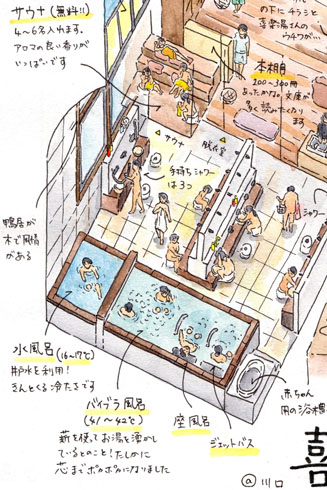 サウナ(無料!!)
4〜6名入れます。
アロマの良い香りが
いっぱいです
の下にチラシと
喜楽湯さんの
ウチワが…
本棚
200〜300冊
あったかな。文庫が
多く読みたくなり
ます
サウナ
脱衣室
手持ちシャワー
は3つ
シャワー
鴨居が
木で風情
がある
水風呂(16〜17℃)
井戸水を利用!
きんとくる冷たさです
バイブラ風呂
(41〜42℃)
薪を使ってお湯を沸かし
ているとのこと!たしかに
芯までポカポカになりました
座風呂
ジェットバス
赤ちゃん
用の浴槽
喜
@川口